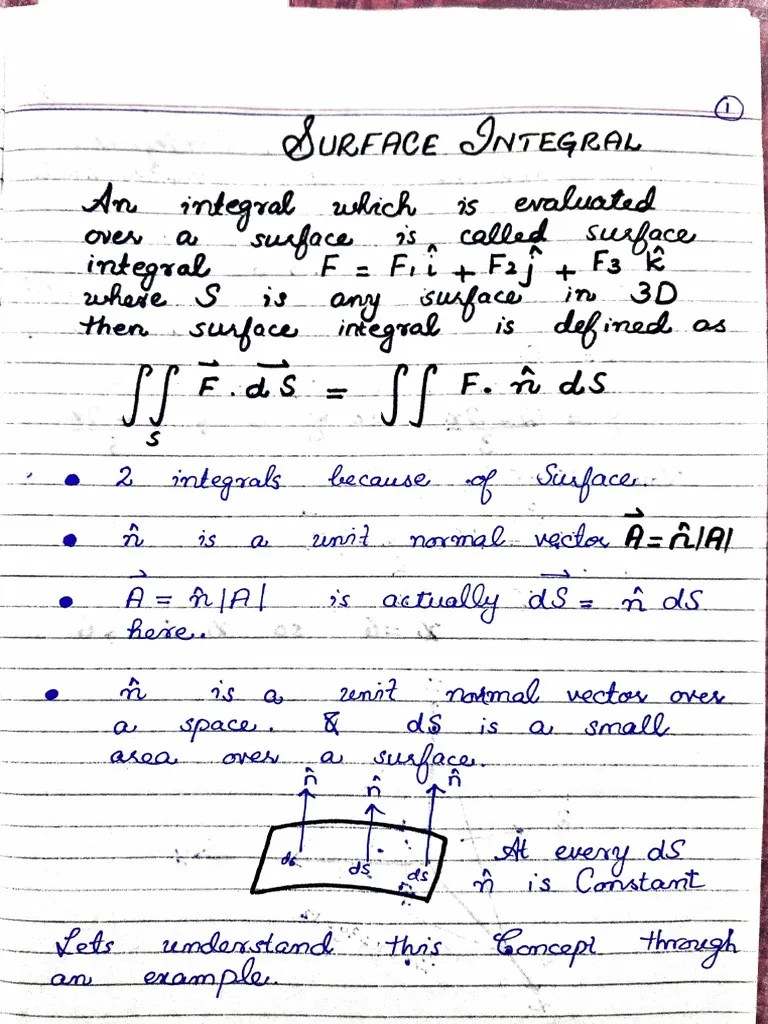 1
SURFACE INTEGRAL
An integral which is evaluated
over a surface is called surface
integral F = F1 î + F2 ĵ + F3 k̂
where S is any surface in 3D
then surface integral is defined as
∬S F⃗ . dS⃗ = ∬ F. n̂ dS
• 2 integrals because of Surface.
• n̂ is a unit normal vector A⃗ = n̂|A|
• A⃗ = n̂|A| is actually dS⃗ = n̂ dS
here..
• n̂ is a unit normal vector over
a space. & dS is a small
area over a surface.
n̂ n̂ n̂
ds ds ds
At every dS
n̂ is Constant
Lets understand this Concept through
an example.